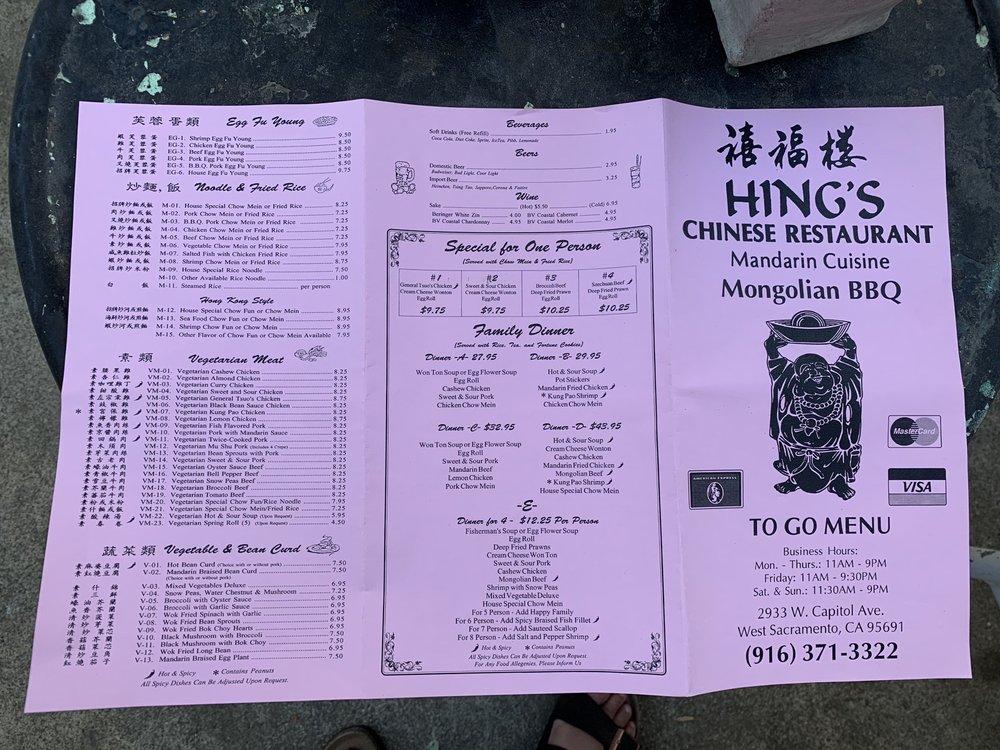 芙蓉蛋類 Egg Fu Young
蝦芙蓉蛋 EG-1. Shrimp Egg Fu Young 9.50
雞芙蓉蛋 EG-2. Chicken Egg Fu Young 8.50
牛芙蓉蛋 EG-3. Beef Egg Fu Young 8.50
肉芙蓉蛋 EG-4. Pork Egg Fu Young 8.50
叉燒芙蓉蛋 EG-5. B.B.Q. Pork Egg Fu Young 8.50
招牌芙蓉蛋 EG-6. House Egg Fu Young 9.75
炒麵,飯 Noodle & Fried Rice
招牌炒麵或飯 M-01. House Special Chow Mein or Fried Rice 8.25
肉炒麵或飯 M-02. Pork Chow Mein or Fried Rice 7.25
叉燒炒麵或飯 M-03. B.B.Q. Pork Chow Mein or Fried Rice 7.25
雞炒麵或飯 M-04. Chicken Chow Mein or Fried Rice 7.25
牛炒麵或飯 M-05. Beef Chow Mein or Fried Rice 7.25
素炒麵或飯 M-06. Vegetable Chow Mein or Fried Rice 7.95
咸魚雞粒炒飯 M-07. Salted Fish with Chicken Fried Rice 7.95
蝦炒麵或飯 M-08. Shrimp Chow Mein or Fried Rice 8.75
招牌炒米粉 M-09. House Special Rice Noodle 7.50
M-10. Other Available Rice Noodle 1.00
白飯 M-11. Steamed Rice per person
Hong Kong Style
招牌炒河或煎麵 M-12. House Special Chow Fun or Chow Mein 8.95
海鮮炒河或煎麵 M-13. Sea Food Chow Fun or Chow Mein 8.95
蝦炒河或煎麵 M-14. Shrimp Chow Fun or Chow Mein 8.95
M-15. Other Flavor of Chow Fun or Chow Mein Available 7.95
素類 Vegetarian Meat
素腰果雞 VM-01. Vegetarian Cashew Chicken 8.25
素杏仁雞 VM-02. Vegetarian Almond Chicken 8.25
素咖喱雞丁 VM-03. Vegetarian Curry Chicken 8.25
素甜酸雞 VM-04. Vegetarian Sweet and Sour Chicken 8.25
素左宗棠雞 VM-05. Vegetarian General Tsuo's Chicken 8.75
素豉椒雞 VM-06. Vegetarian Black Bean Sauce Chicken 8.25
* 素宮保雞 VM-07. Vegetarian Kung Pao Chicken 8.25
素檸檬雞 VM-08. Vegetarian Lemon Chicken 8.75
素魚香肉絲 VM-09. Vegetarian Fish Flavored Pork 8.25
素京醬肉絲 VM-10. Vegetarian Pork with Mandarin Sauce 8.25
素回鍋肉 VM-11. Vegetarian Twice-Cooked Pork 8.25
素木須肉 VM-12. Vegetarian Mu Shu Pork (Includes 4 Crepe) 8.25
素芽菜肉絲 VM-13. Vegetarian Bean Sprouts with Pork 8.25
素古老肉 VM-14. Vegetarian Sweet & Sour Pork 8.25
素蠔油牛肉 VM-15. Vegetarian Oyster Sauce Beef 8.25
素青椒牛肉 VM-16. Vegetarian Bell Pepper Beef 8.25
素雪豆牛肉 VM-17. Vegetarian Snow Peas Beef 8.25
素芥蘭牛肉 VM-18. Vegetarian Broccoli Beef 8.25
素蕃茄牛肉 VM-19. Vegetarian Tomato Beef 8.25
素炒河或米粉 VM-20. Vegetarian Special Chow Fun/Rice Noodle 7.95
素什麵或飯 VM-21. Vegetarian Special Chow Mein/Fried Rice 7.25
素酸辣湯 VM-22. Vegetarian Hot & Sour Soup (Upon Request) 5.95
素春卷 VM-23. Vegetarian Spring Roll (5) (Upon Request) 4.50
蔬菜類 Vegetable & Bean Curd
素麻婆豆腐 V-01. Hot Bean Curd (Choice with or without pork) 7.50
素紅燒豆腐 V-02. Mandarin Braised Bean Curd 7.50
(Choice with or without pork)
素什錦 V-03. Mixed Vegetables Deluxe 6.95
素三鮮 V-04. Snow Peas, Water Chestnut & Mushroom 7.25
蠔油芥蘭 V-05. Broccoli with Oyster Sauce 6.95
魚香芥蘭 V-06. Broccoli with Garlic Sauce 6.95
清炒菠菜 V-07. Wok Fried Spinach with Garlic 6.95
清炒芽菜 V-08. Wok Fried Bean Sprouts 6.95
清炒菜芯 V-09. Wok Fried Bok Choy Hearts 6.95
香菇芥蘭 V-10. Black Mushroom with Broccoli 7.50
香菇菜芯 V-11. Black Mushroom with Bok Choy 7.50
清炒豆角 V-12. Wok Fried Long Bean 6.95
紅燒茄子 V-13. Mandarin Braised Egg Plant 7.50
Hot & Spicy * Contains Peanuts
All Spicy Dishes Can Be Adjusted Upon Request.
Beverages
Soft Drinks (Free Refill) 1.95
Coca Cola, Diet Coke, Sprite, IceTea, Pibb, Lemonade
Beers
Domestic Beer 2.95
Budweiser, Bud Light, Coor Light
Import Beer 3.25
Heineken, Tsing Tao, Sapporo, Corona & Fatire
Wine
Sake (Hot) $5.50 (Cold) 6.95
Beringer White Zin 4.00 BV Coastal Cabernet 4.95
BV Coastal Chardonnay 4.95 BV Coastal Merlot 4.95
Special for One Person
(Served with Chow Mein & Fried Rice)
#1
General Tsuo's Chicken
Cream Cheese Wonton
Egg Roll
$9.75
#2
Sweet & Sour Chicken
Cream Cheese Wonton
Egg Roll
$9.75
#3
Broccoli Beef
Deep Fried Prawn
Egg Roll
$10.25
#4
Szechuan Beef
Deep Fried Prawn
Egg Roll
$10.25
Family Dinner
(Served with Rice, Tea, and Fortune Cookies)
Dinner -A- 27.95
Won Ton Soup or Egg Flower Soup
Egg Roll
Cashew Chicken
Sweet & Sour Pork
Chicken Chow Mein
Dinner -B- 29.95
Hot & Sour Soup
Pot Stickers
Mandarin Fried Chicken
* Kung Pao Shrimp
Chicken Chow Mein
Dinner -C- $32.95
Won Ton Soup or Egg Flower Soup
Egg Roll
Sweet & Sour Pork
Mandarin Beef
Lemon Chicken
Pork Chow Mein
Dinner -D- $43.95
Hot & Sour Soup
Cream Cheese Wonton
Cashew Chicken
Mandarin Fried Chicken
Mongolian Beef
* Kung Pao Shrimp
House Special Chow Mein
-E-
Dinner for 4 - $12.25 Per Person
Fisherman's Soup or Egg Flower Soup
Egg Roll
Deep Fried Prawns
Cream Cheese Won Ton
Sweet & Sour Pork
Cashew Chicken
Mongolian Beef
Shrimp with Snow Peas
Mixed Vegetable Deluxe
House Special Chow Mein
For 5 Person - Add Happy Family
For 6 Person - Add Spicy Braised Fish Fillet
For 7 Person - Add Sauteed Scallop
For 8 Person - Add Salt and Pepper Shrimp
Hot & Spicy * Contains Peanuts
All Spicy Dishes Can Be Adjusted Upon Request.
For Any Food Allegenies, Please Inform Us
禧福楼
HING'S
CHINESE RESTAURANT
Mandarin Cuisine
Mongolian BBQ
MasterCard
AMERICAN EXPRESS
VISA
TO GO MENU
Business Hours:
Mon. - Thurs.: 11AM - 9PM
Friday: 11AM - 9:30PM
Sat. & Sun.: 11:30AM - 9PM
2933 W. Capitol Ave.
West Sacramento, CA 95691
(916) 371-3322